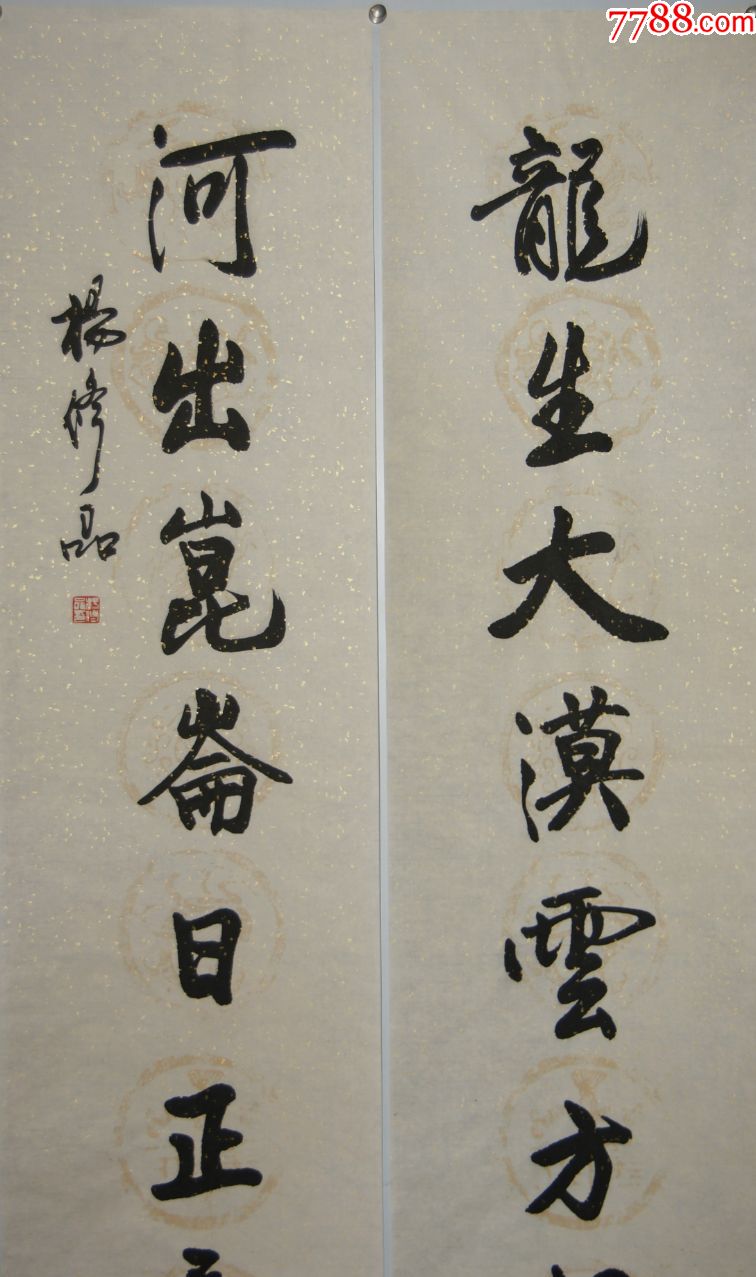 7788.com
龍生大漠雲方
河出崑崙日正
楊修品